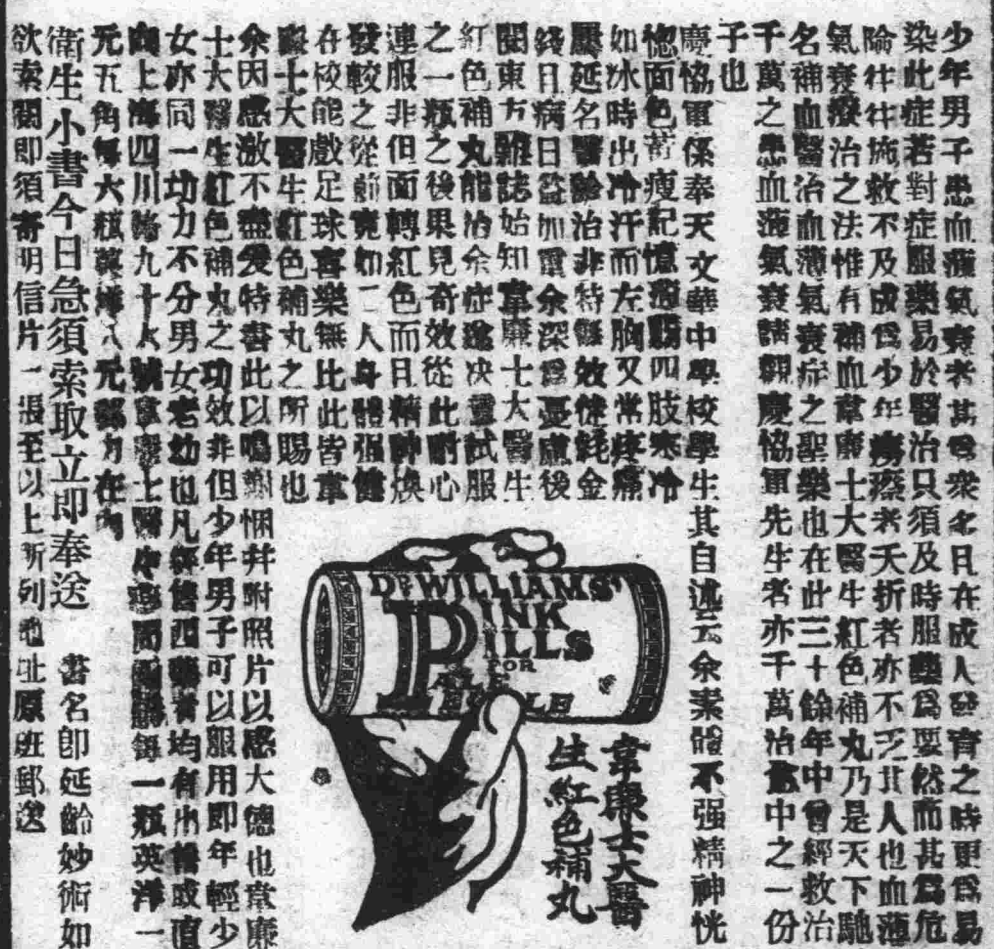 少年男子患血薄氣衰者甚爲衆多且在成人發育之時更爲易
染此症若對症服藥易於醫治只須及時服藥爲要然而甚爲危
險往往施救不及成爲少年癆瘵者夭折者亦不乏其人也血薄
氣衰療治之法惟有補血韋廉士大醫生紅色補丸乃是天下馳
名補血醫治血薄氣衰症之聖藥也在此三十餘年中曾經救治
千萬之患血薄氣衰請觀慶協軍先生者亦千萬治愈中之一份
子也
慶協軍係奉天文華中學校學生其自述云余素體不强精神恍
惚面色蒼瘦記憶薄弱四肢寒冷
如冰時出冷汗而左胸又常疼痛
屢延名醫診治非特無效徒耗金
錢且病日益加重余深爲憂慮後
閱東方雜誌始知韋廉士大醫生
紅色補丸能治余症遂决意試服
之一瓶之後果見奇效從此耐心
連服非但面轉紅色而且精神煥
發較之從前竟如二人身體强健
在校能戲足球喜樂無比此皆韋
廉士大醫生紅色補丸之所賜也
余因感激不盡爰特書此以鳴謝悃并附照片以感大德也韋廉
士大醫生紅色補丸之功效非但少年男子可以服用即年輕少
女亦同一功力不分男女老幼也凡經售西藥者均有出售或直
向上海四川路九十六號韋廉士醫生藥局函購每一瓶英洋一
元五角每六瓶英洋八元郵力在內
衛生小書今日急須索取立即奉送 書名卽延齡妙術如
欲索閱即須寄明信片一張至以上所列地址原班郵送
DR WILLIAMS'
PINK
PILLS
FOR
PALE
PEOPLE
韋廉士大醫
生紅色補丸